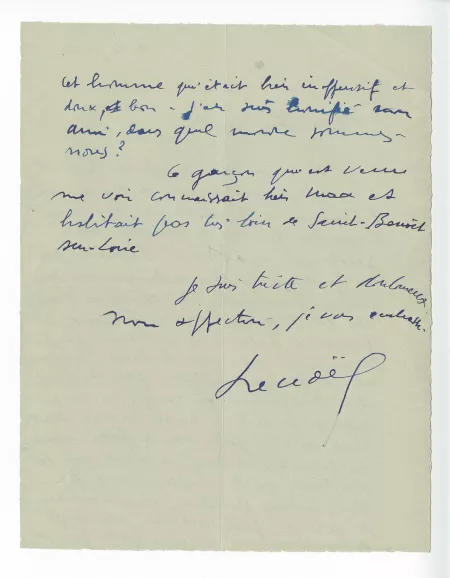 cet homme qui était bien inoffensif et
doux, et bon - j'en suis terrifié mon
ami, dans quel monde sommes-
nous?
Ce garçon qui est venu
me voir connaissait bien Max et
habitait pas très loin de Saint-Benoît
sur-Loire
Je suis triste et douloureux
mon affection, je vous embrasse.